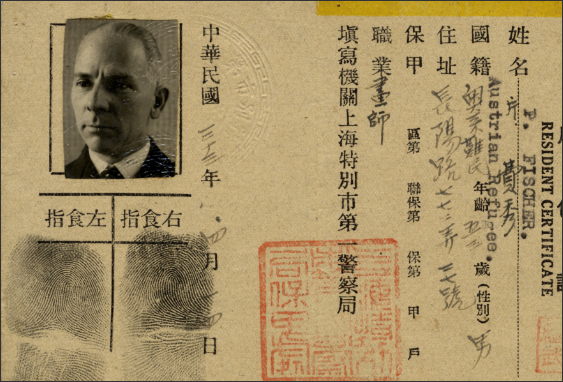 RESIDENT CERTIFICATE
P. FISCHER.
Austrian Refugee.
姓名
國籍 難民 年齡 歲(性別) 男
住址 長陽路七七二弄三七號
保甲 區第 聯保第 保第 甲 戶
職業 畫師
塡寫機關上海特別市第一警察局
中華民國 三十三年 四月十四日
右食指
左食指